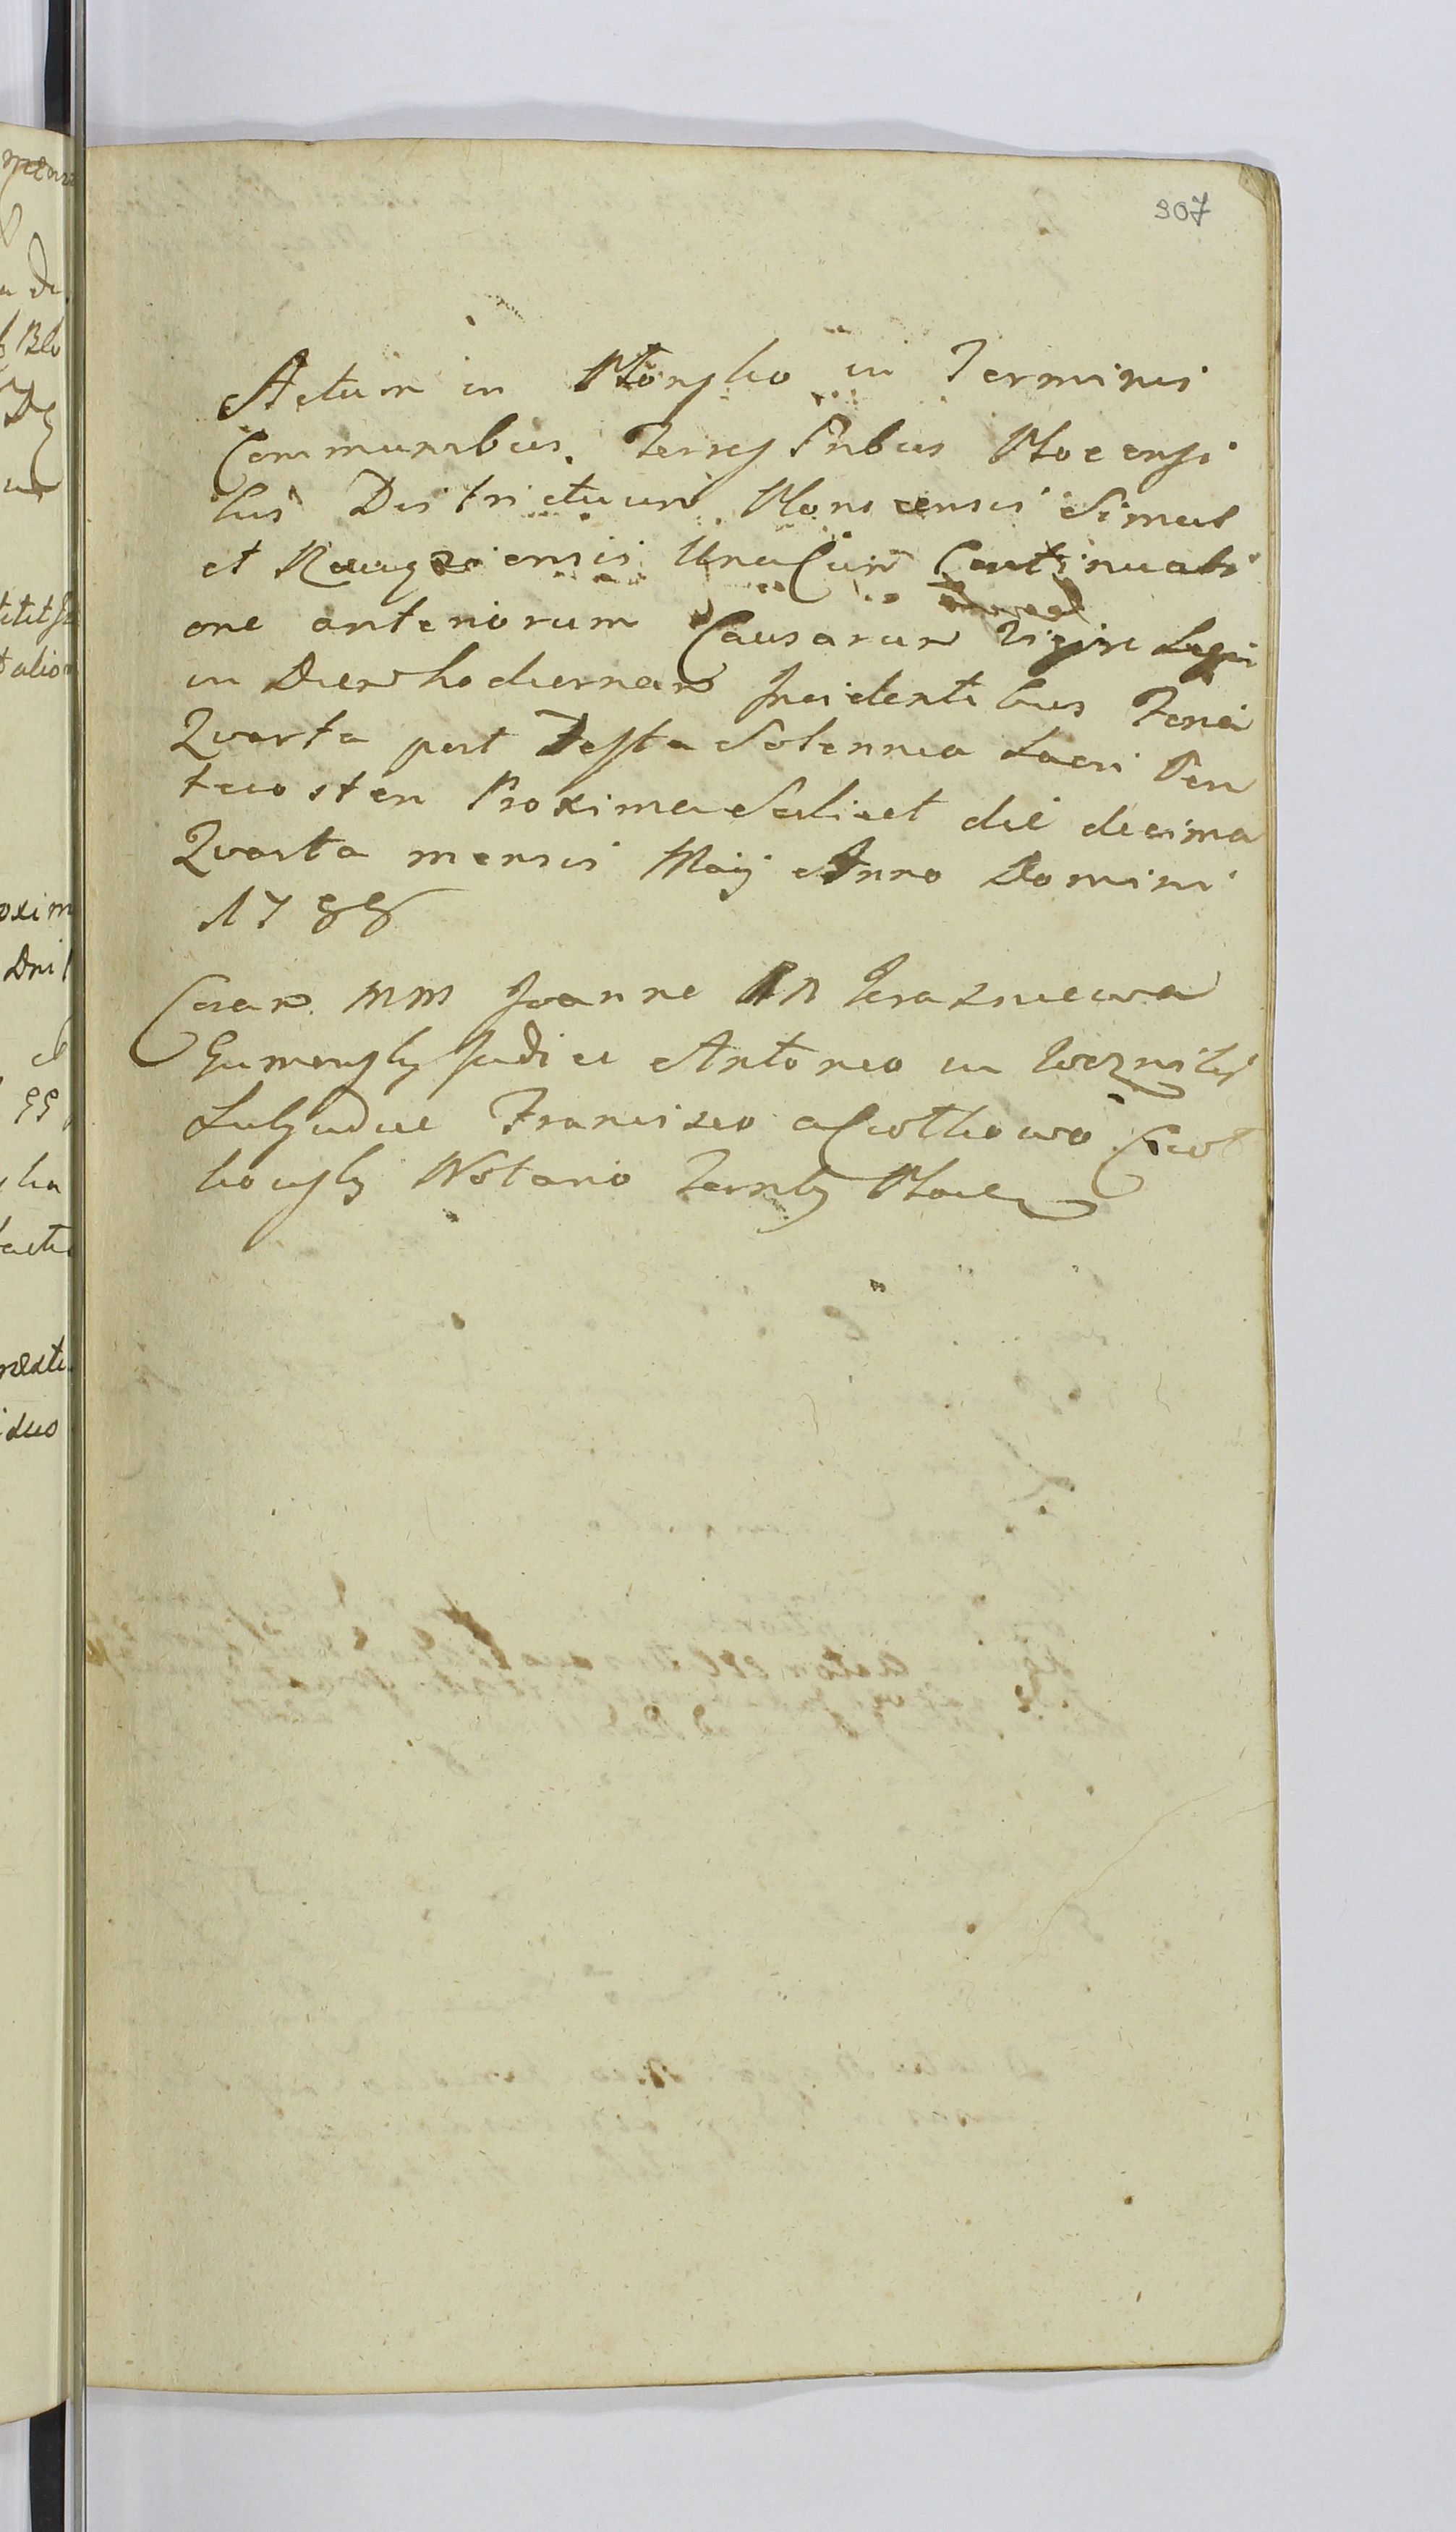 907
Actum in Płońsko in Terminis
Communibus Terrestribus Plocensi
bus Districtuum Plonscensis Simul
et Raciązensis Una Cum Continuati
one anteriorum Causarum Vigore Legis
in Diem hodiernam Incidentibus Feria
Quarta post Festa Solennia Sacri Pen
tecosten Proxima Scilicet die decima
Quarta mensis Maij Anno Domini
1788
Coram MM Joanne
Gumowsky Judice Antonio in
Subjudice Francisco a Ciołkowo Cioł
kowsky Notario Terrsbg Plocen